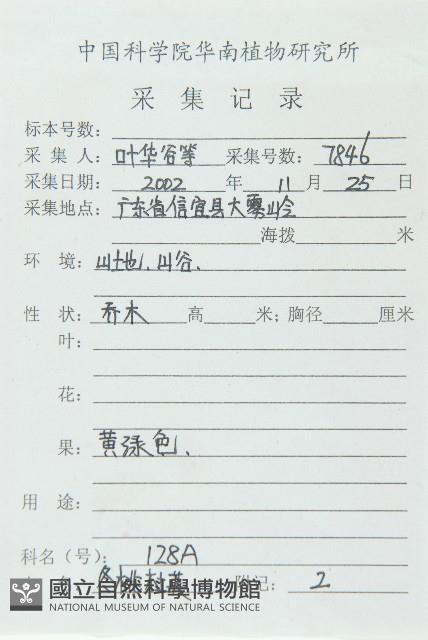 中国科学院华南植物研究所
采集记录
标本号数:
采集人: 叶华谷等 采集号数: 7846
采集日期: 2002 年 11 月 25 日
采集地点: 广东省信宜县大雾岭
海拨 米
环境: 山地、山谷、
性状: 乔木 高 米; 胸径 厘米
叶:
花:
果: 黄绿色、
用途:
科名(号): 128A
附记: 2
國立自然科學博物館
NATIONAL MUSEUM OF NATURAL SCIENCE